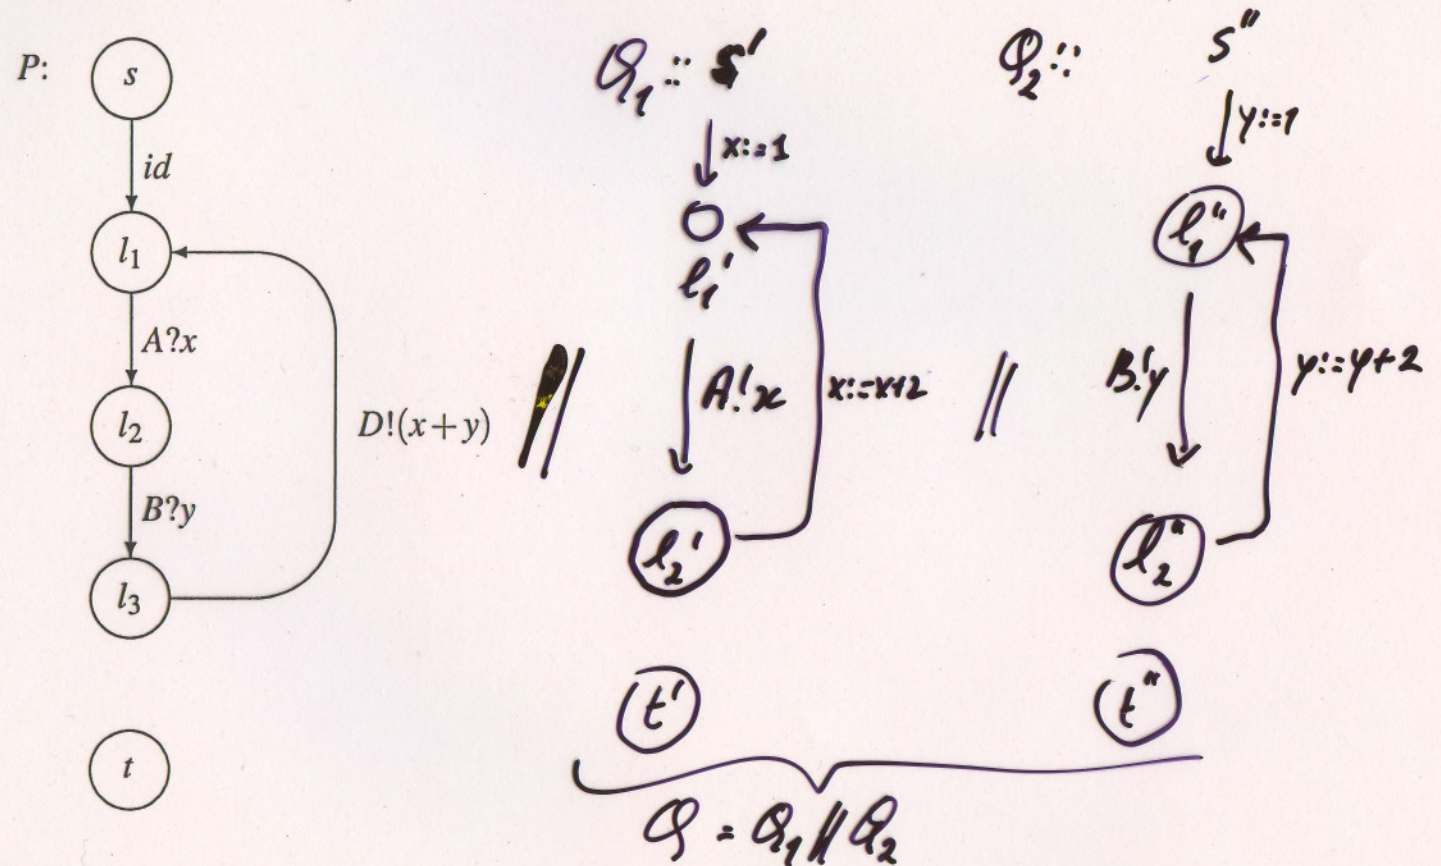 P:
s
id
l₁
A?x
l₂
B?y
l₃
D!(x+y)
t
//
Q₁ :: s'
x:=1
l₁'
A!x
x:=x+2
l₂'
t'
//
Q₂ ::
s"
y:=1
l₁"
B!y
y:=y+2
l₂"
t"
Q = Q₁ // Q₂